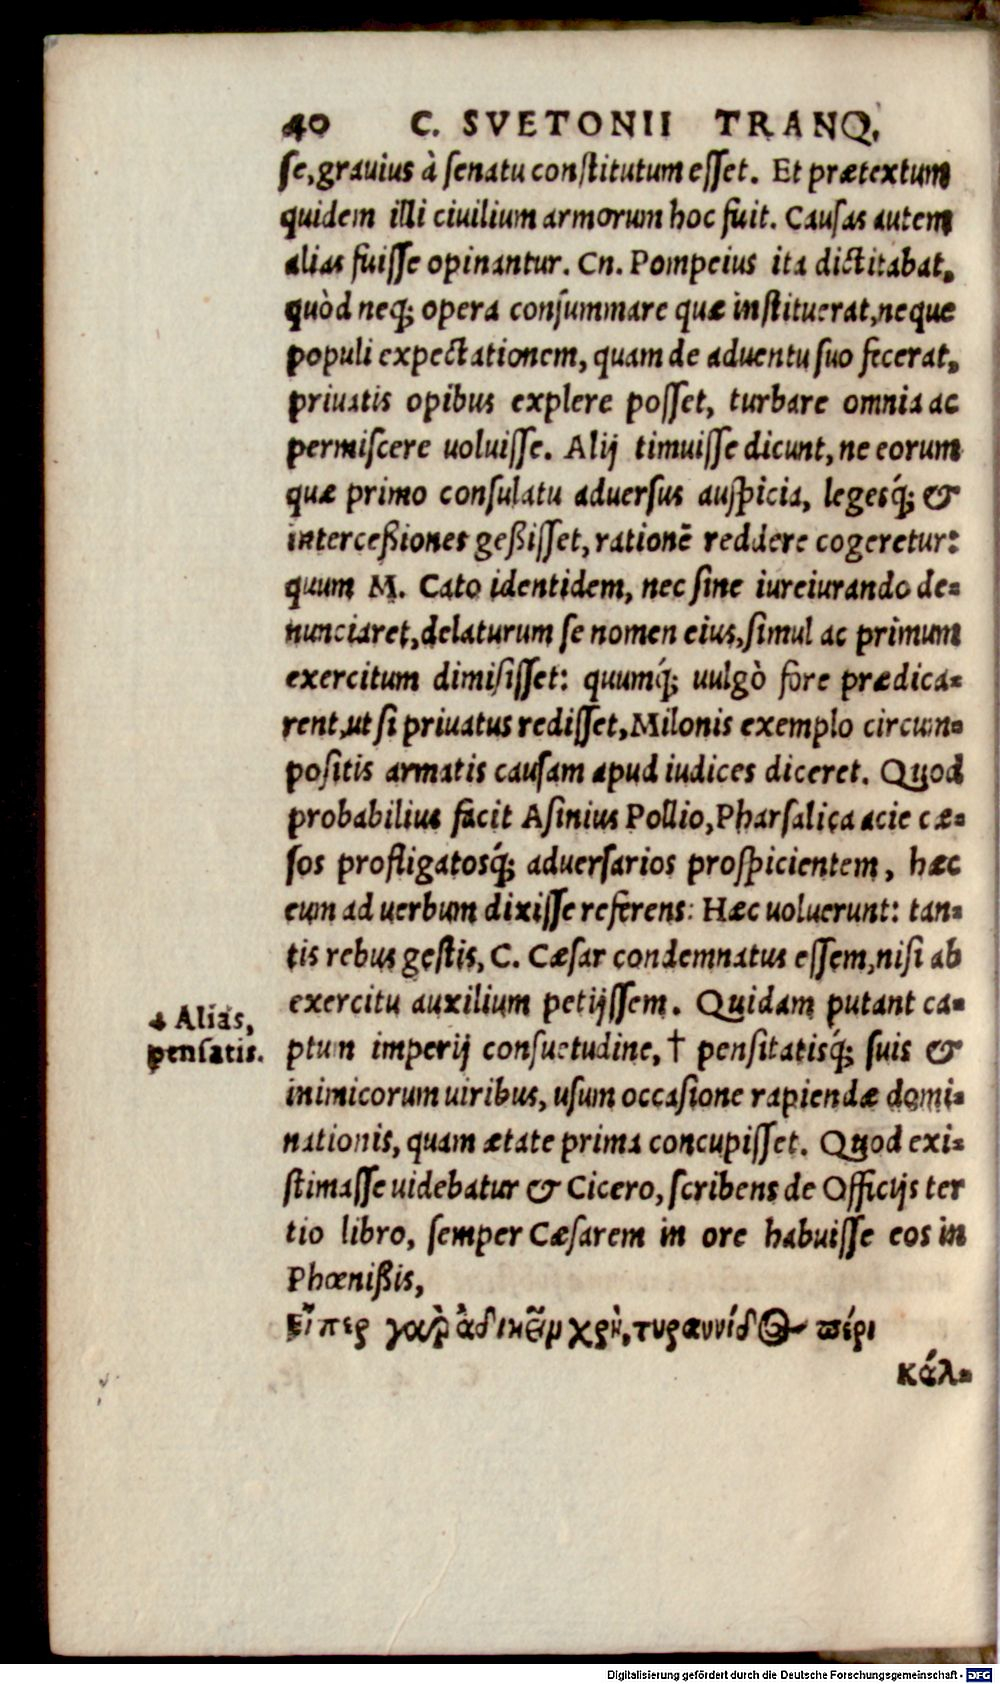 40 C. SVETONII TRANQ.
se, grauius à senatu constitutum esset. Et prætextum
quidem illi ciuilium armorum hoc fuit. Causas autem
alias fuisse opinantur. Cn. Pompeius ita dictitabat,
quòd neq; opera consummare quæ instituerat, neque
populi expectationem, quam de aduentu suo fecerat,
priuatis opibus explere posset, turbare omnia ac
permiscere uoluisse. Alij timuisse dicunt, ne eorum
quæ primo consulatu aduersus auspicia, legesq́; &
interceßiones geßisset, rationē reddere cogeretur:
quum M. Cato identidem, nec sine iureiurando de-
nunciaret, delaturum se nomen eius, simul ac primum
exercitum dimisisset: quumq́; uulgò fore prædica-
rent, ut si priuatus redisset, Milonis exemplo circum-
positis armatis causam apud iudices diceret. Quod
probabilius facit Asinius Pollio, Pharsalica acie cæ-
sos profligatosq́; aduersarios prospicientem, hæc
eum ad uerbum dixisse referens: Hæc uoluerunt: tan-
tis rebus gestis, C. Cæsar condemnatus essem, nisi ab
exercitu auxilium petijssem. Quidam putant ca-
ptum imperij consuetudine, † pensitatisq́; suis &
inimicorum uiribus, usum occasione rapiendæ domi-
nationis, quam ætate prima concupisset. Quod exi-
stimasse uidebatur & Cicero, scribens de Officijs ter
tio libro, semper Cæsarem in ore habuisse eos in
Phœnißis,
Εἴπερ γὰρ ἀδικεῖν χρὴ, τυραννίδος πέρι
κάλ-
† Alias,
pensatis.
Digitalisierung gefördert durch die Deutsche Forschungsgemeinschaft - DFG